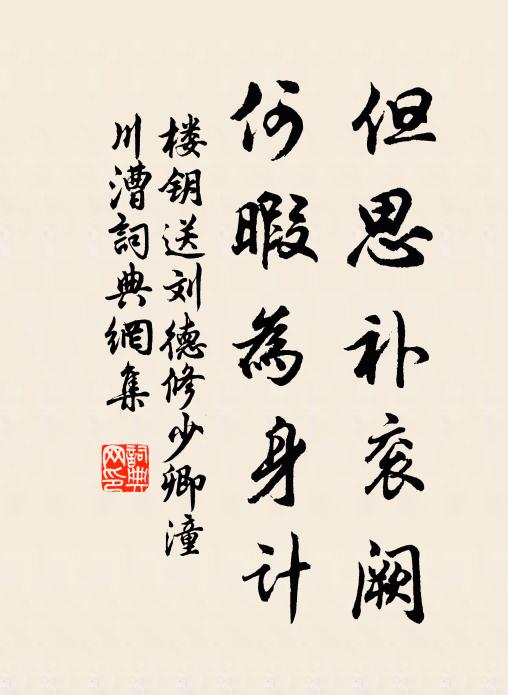 但思补衮阙
何暇為身计
楼钥送刘德修少卿潼
川漕詞典網集
詞典网印